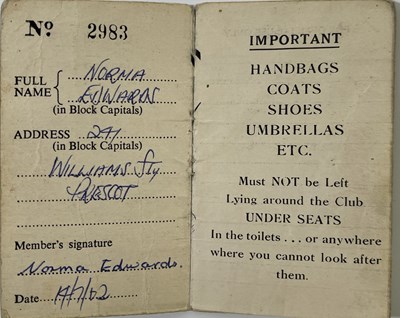 Nº 2983
FULL NAME { NORMA
EDWARDS
(in Block Capitals)
ADDRESS 241
(in Block Capitals)
WILLIAMS
PRESCOT
Member's signature
Norma Edwards.
Date
IMPORTANT
HANDBAGS
COATS
SHOES
UMBRELLAS
ETC.
Must NOT be Left
Lying around the Club
UNDER SEATS
In the toilets . . . or anywhere
where you cannot look after
them.